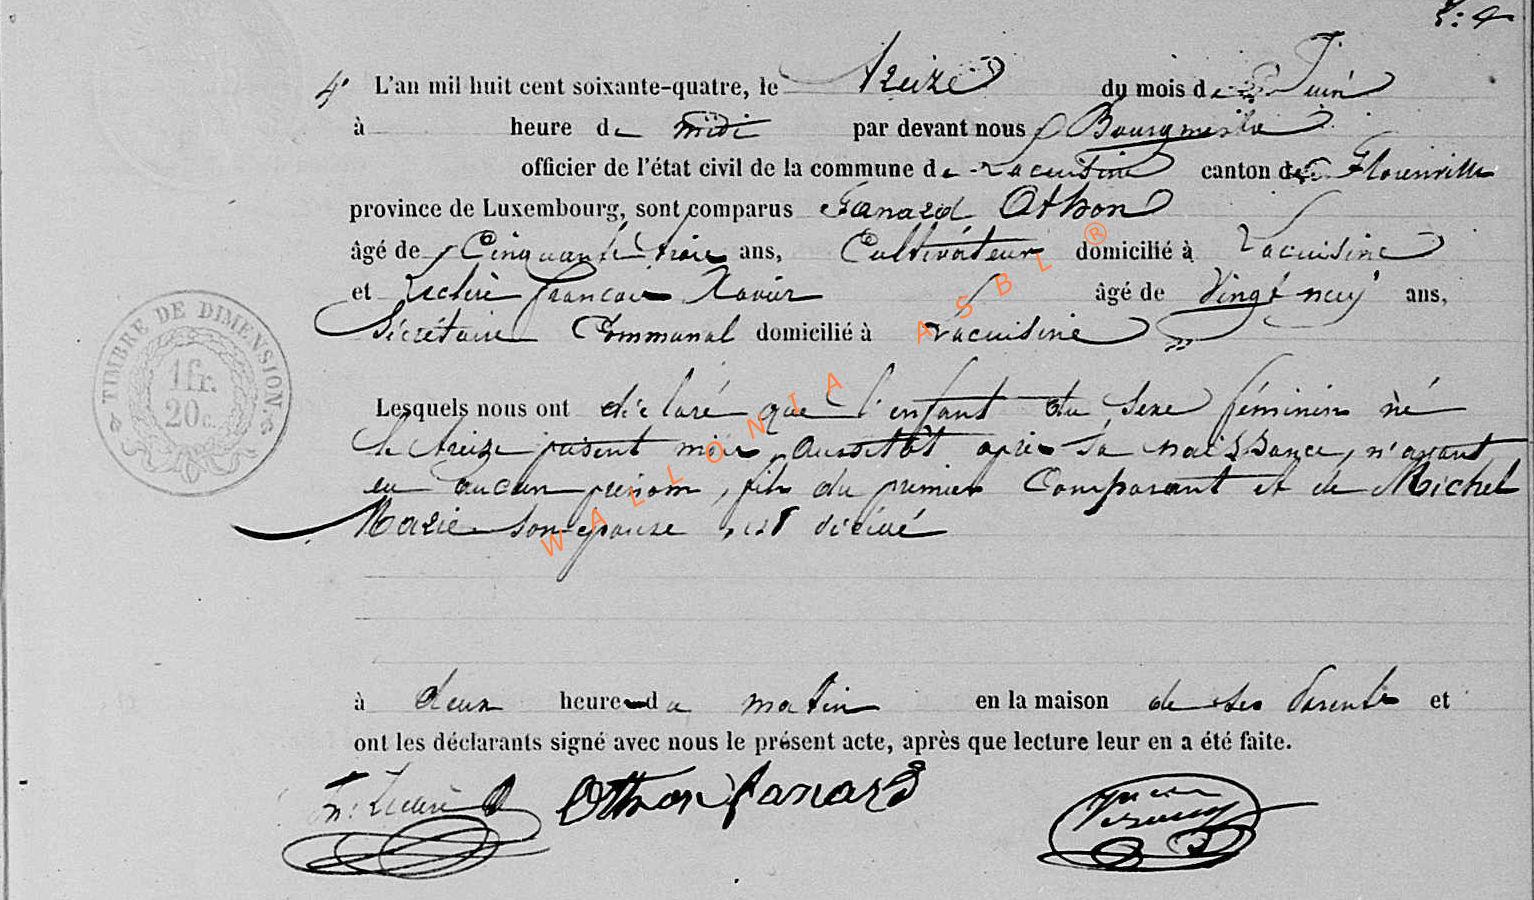 4e L'an mil huit cent soixante-quatre, le treize du mois de Juin
à heure de midi par devant nous Bourgmestre
officier de l'état civil de la commune de Lacuisine canton de Florenville
province de Luxembourg, sont comparus Fanard Othon
âgé de Cinquante trois ans, Cultivateur domicilié à Lacuisine
et Leclère françois Xavier âgé de Vingt neuf ans,
Secrétaire Communal domicilié à Lacuisine
Lesquels nous ont déclaré que l'enfant du sexe féminin né
le treize présent mois, aussitôt après sa naissance, n'ayant
eu aucun prénom, fils du premier Comparant et de Michel
Marie son épouse, est décédé
à deux heures du matin en la maison de ses Parents et
ont les déclarants signé avec nous le présent acte, après que lecture leur en a été faite.
Othon fanard
TIMBRE DE DIMENSION.
1 fr.
20 c.
WALLONIA ASBL ®